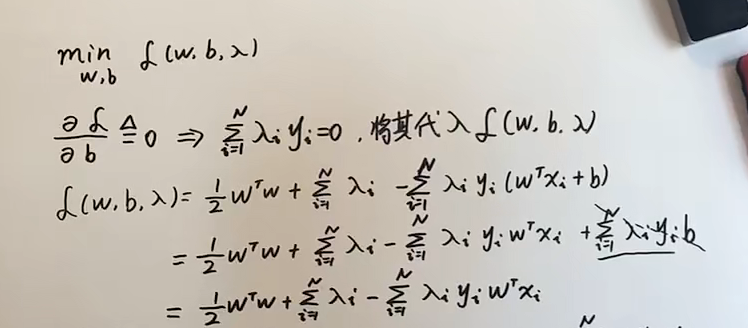 min ℒ(w, b, λ)
w,b
∂ℒ/∂b ≜ 0 ⇒ ∑_{i=1}^{N} λ_i y_i = 0 , 将其代入 ℒ(w, b, λ)
ℒ(w, b, λ) = 1/2 w^T w + ∑_{i=1}^{N} λ_i - ∑_{i=1}^{N} λ_i y_i (w^T x_i + b)
= 1/2 w^T w + ∑_{i=1}^{N} λ_i - ∑_{i=1}^{N} λ_i y_i w^T x_i + ∑_{i=1}^{N} λ_i y_i b
= 1/2 w^T w + ∑_{i=1}^{N} λ_i - ∑_{i=1}^{N} λ_i y_i w^T x_i
N